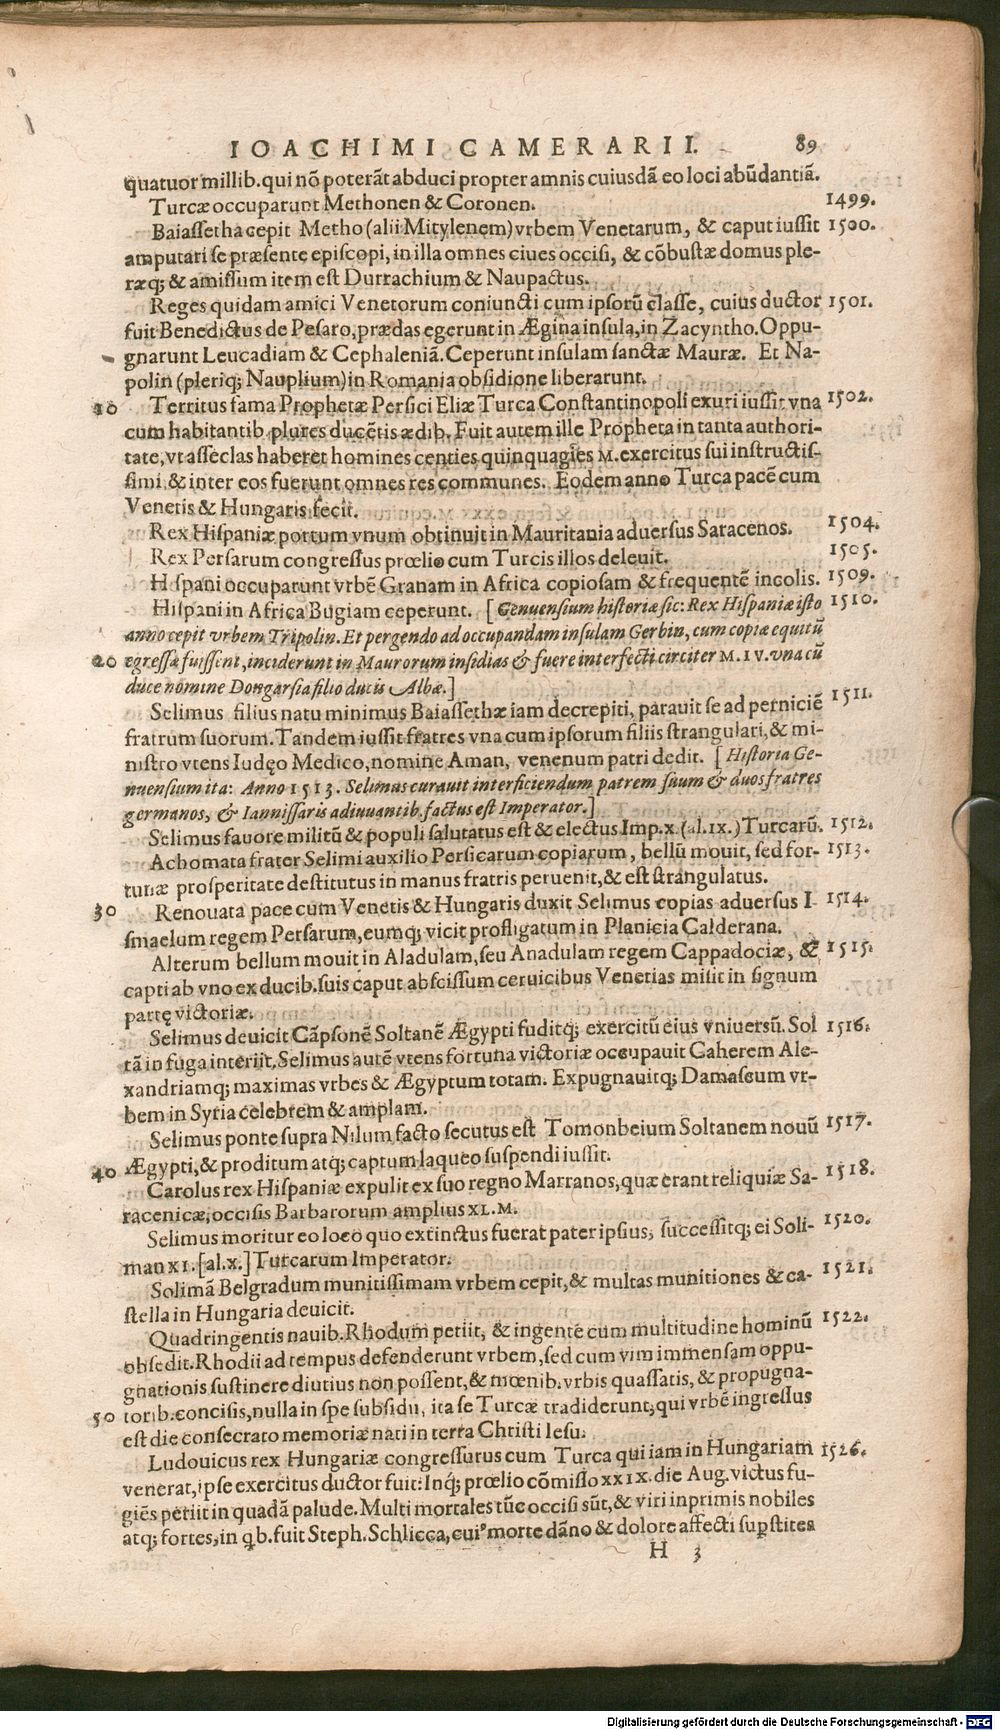 IOACHIMI CAMERARII. 89
quatuor millib. qui nõ poterãt abduci propter amnis cuiusdã eo loci abũdantiã.
Turcæ occuparunt Methonen & Coronen. 1499.
Baiassetha cepit Metho (alii Mitylenem) vrbem Venetarum, & caput iussit 1500.
amputari se præsente episcopi, in illa omnes ciues occisi, & cõbustæ domus ple-
ræq; & amissum item est Durrachium & Naupactus.
Reges quidam amici Venetorum coniuncti cum ipsorũ classe, cuius ductor 1501.
fuit Benedictus de Pesaro, prædas egerunt in Ægina insula, in Zacyntho. Oppu-
gnarunt Leucadiam & Cephaleniã. Ceperunt insulam sanctæ Mauræ. Et Na-
polin (pleriq; Nauplium) in Romania obsidione liberarunt.
10 Territus fama Prophetæ Persici Eliæ Turca Constantinopoli exuri iussit vna 1502.
cum habitantib. plures ducẽtis ædib. Fuit autem ille Propheta in tanta authori-
tate, vt asseclas haberet homines centies quinquagies M. exercitus sui instructis-
simi, & inter eos fuerunt omnes res communes. Eodem anno Turca pacẽ cum
Venetis & Hungaris fecit.
Rex Hispaniæ portum vnum obtinuit in Mauritania aduersus Saracenos. 1504.
Rex Persarum congressus prœlio cum Turcis illos deleuit. 1505.
Hispani occuparunt vrbẽ Granam in Africa copiosam & frequentẽ incolis. 1509.
Hispani in Africa Bugiam ceperunt. [Genuensium historiæ sic: Rex Hispaniæ isto 1510.
anno cepit vrbem Tripolin. Et pergendo ad occupandam insulam Gerbin, cum copiæ equitũ
20 egressæ fuissent, inciderunt in Maurorum insidias & fuere interfecti circiter M. IV. vna cũ
duce nomine Dongarsia filio ducis Albæ.]
Selimus filius natu minimus Baiassethæ iam decrepiti, parauit se ad perniciẽ 1511.
fratrum suorum. Tandem iussit fratres vna cum ipsorum filiis strangulari, & mi-
nistro vtens Iudęo Medico, nomine Aman, venenum patri dedit. [Historia Ge-
nuensium ita: Anno 1513. Selimus curauit interficiendum patrem suum & duos fratres
germanos, & Iannissaris adiuuantib. factus est Imperator.]
Selimus fauore militũ & populi salutatus est & electus Imp. x. (al. ix.) Turcarũ. 1512.
Achomata frater Selimi auxilio Persicarum copiarum, bellũ mouit, sed for- 1513.
tunæ prosperitate destitutus in manus fratris peruenit, & est strangulatus.
30 Renouata pace cum Venetis & Hungaris duxit Selimus copias aduersus I- 1514.
smaelum regem Persarum, eumq; vicit profligatum in Planicia Calderana.
Alterum bellum mouit in Aladulam, seu Anadulam regem Cappadociæ, & 1515.
capti ab vno ex ducib. suis caput abscissum ceruicibus Venetias misit in signum
partę victoriæ.
Selimus deuicit Cãpsonẽ Soltanẽ Ægypti fuditq; exercitũ eius vniuersũ. Sol 1516.
tã in fuga interiit. Selimus autẽ vtens fortuna victoriæ occupauit Caherem Ale-
xandriamq; maximas vrbes & Ægyptum totam. Expugnauitq; Damascum vr-
bem in Syria celebrem & amplam.
Selimus ponte supra Nilum facto secutus est Tomonbeium Soltanem nouũ 1517.
40 Ægypti, & proditum atq; captum laqueo suspendi iussit.
Carolus rex Hispaniæ expulit ex suo regno Marranos, quæ erant reliquiæ Sa- 1518.
racenicæ, occisis Barbarorum amplius XL. M.
Selimus moritur eo loco quo extinctus fuerat pater ipsius, successitq; ei Soli- 1520.
man XI. [al. x.] Turcarum Imperator.
Solimã Belgradum munitissimam vrbem cepit, & multas munitiones & ca- 1521.
stella in Hungaria deuicit.
Quadringentis nauib. Rhodum petiit, & ingente cum multitudine hominũ 1522.
obsedit. Rhodii ad tempus defenderunt vrbem, sed cum vim immensam oppu-
gnationis sustinere diutius non possent, & mœnib. vrbis quassatis, & propugna-
50 torib. concisis, nulla in spe subsidii, ita se Turcæ tradiderunt, qui vrbẽ ingressus
est die consecrato memoriæ nati in terra Christi Iesu.
Ludouicus rex Hungariæ congressurus cum Turca qui iam in Hungariam 1526.
venerat, ipse exercitus ductor fuit: Inq; prœlio cõmisso XXIX. die Aug. victus fu-
giẽs periit in quadã palude. Multi mortales tũc occisi sũt, & viri inprimis nobiles
atq; fortes, in qb. fuit Steph. Schlicca, cui⁹ morte dãno & dolore affecti suꝑstites
H 3
Digitalisierung gefördert durch die Deutsche Forschungsgemeinschaft - DFG